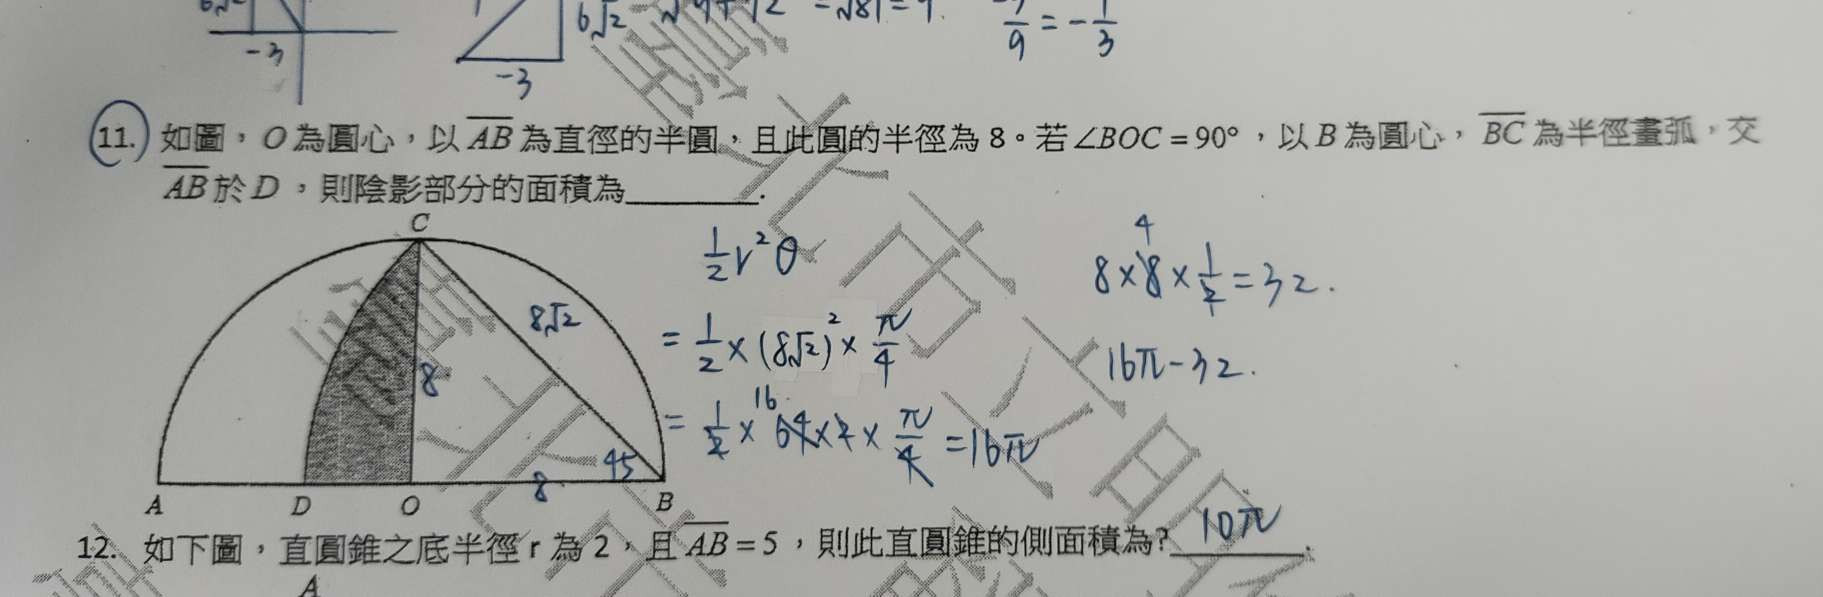 -3
-3
6√2
= √81 = 9
9
= -1/3
11. 如圖，O 為圓心，以 AB 為直徑的半圓，且此圓的半徑為 8。若 ∠BOC = 90°，以 B 為圓心，BC 為半徑畫弧，交
AB 於 D，則陰影部分的面積為________.
C
8√2
8
45
8
A D O B
1/2 r² θ
= 1/2 × (8√2)² × π/4
= 1/2 × 64 × 2 × π/4 = 16π
16
4
8 × 8 × 1/2 = 32.
16π - 32.
12. 如下圖，直圓錐之底半徑 r 為 2，且 AB = 5，則此直圓錐的側面積為? 10π.
A